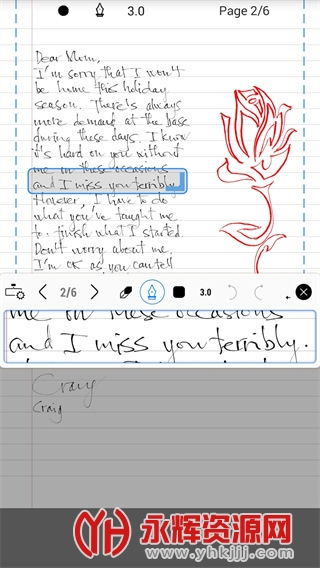 3.0 Page 2/6
Dear Mum,
I'm sorry that I won't
be home this holiday
season. There's always
more demand at the base
during these days. I know
it's hard on you without
me in these occasions
and I miss you terribly.
However, I have to do
what you've taught me
to. finish what I started.
Don't worry about me.
I'm OK as you can tell
2/6 3.0
me in these occasions
and I miss you terribly.
Craig
Craig
YH 永辉资源网
www.yhkjjj.com